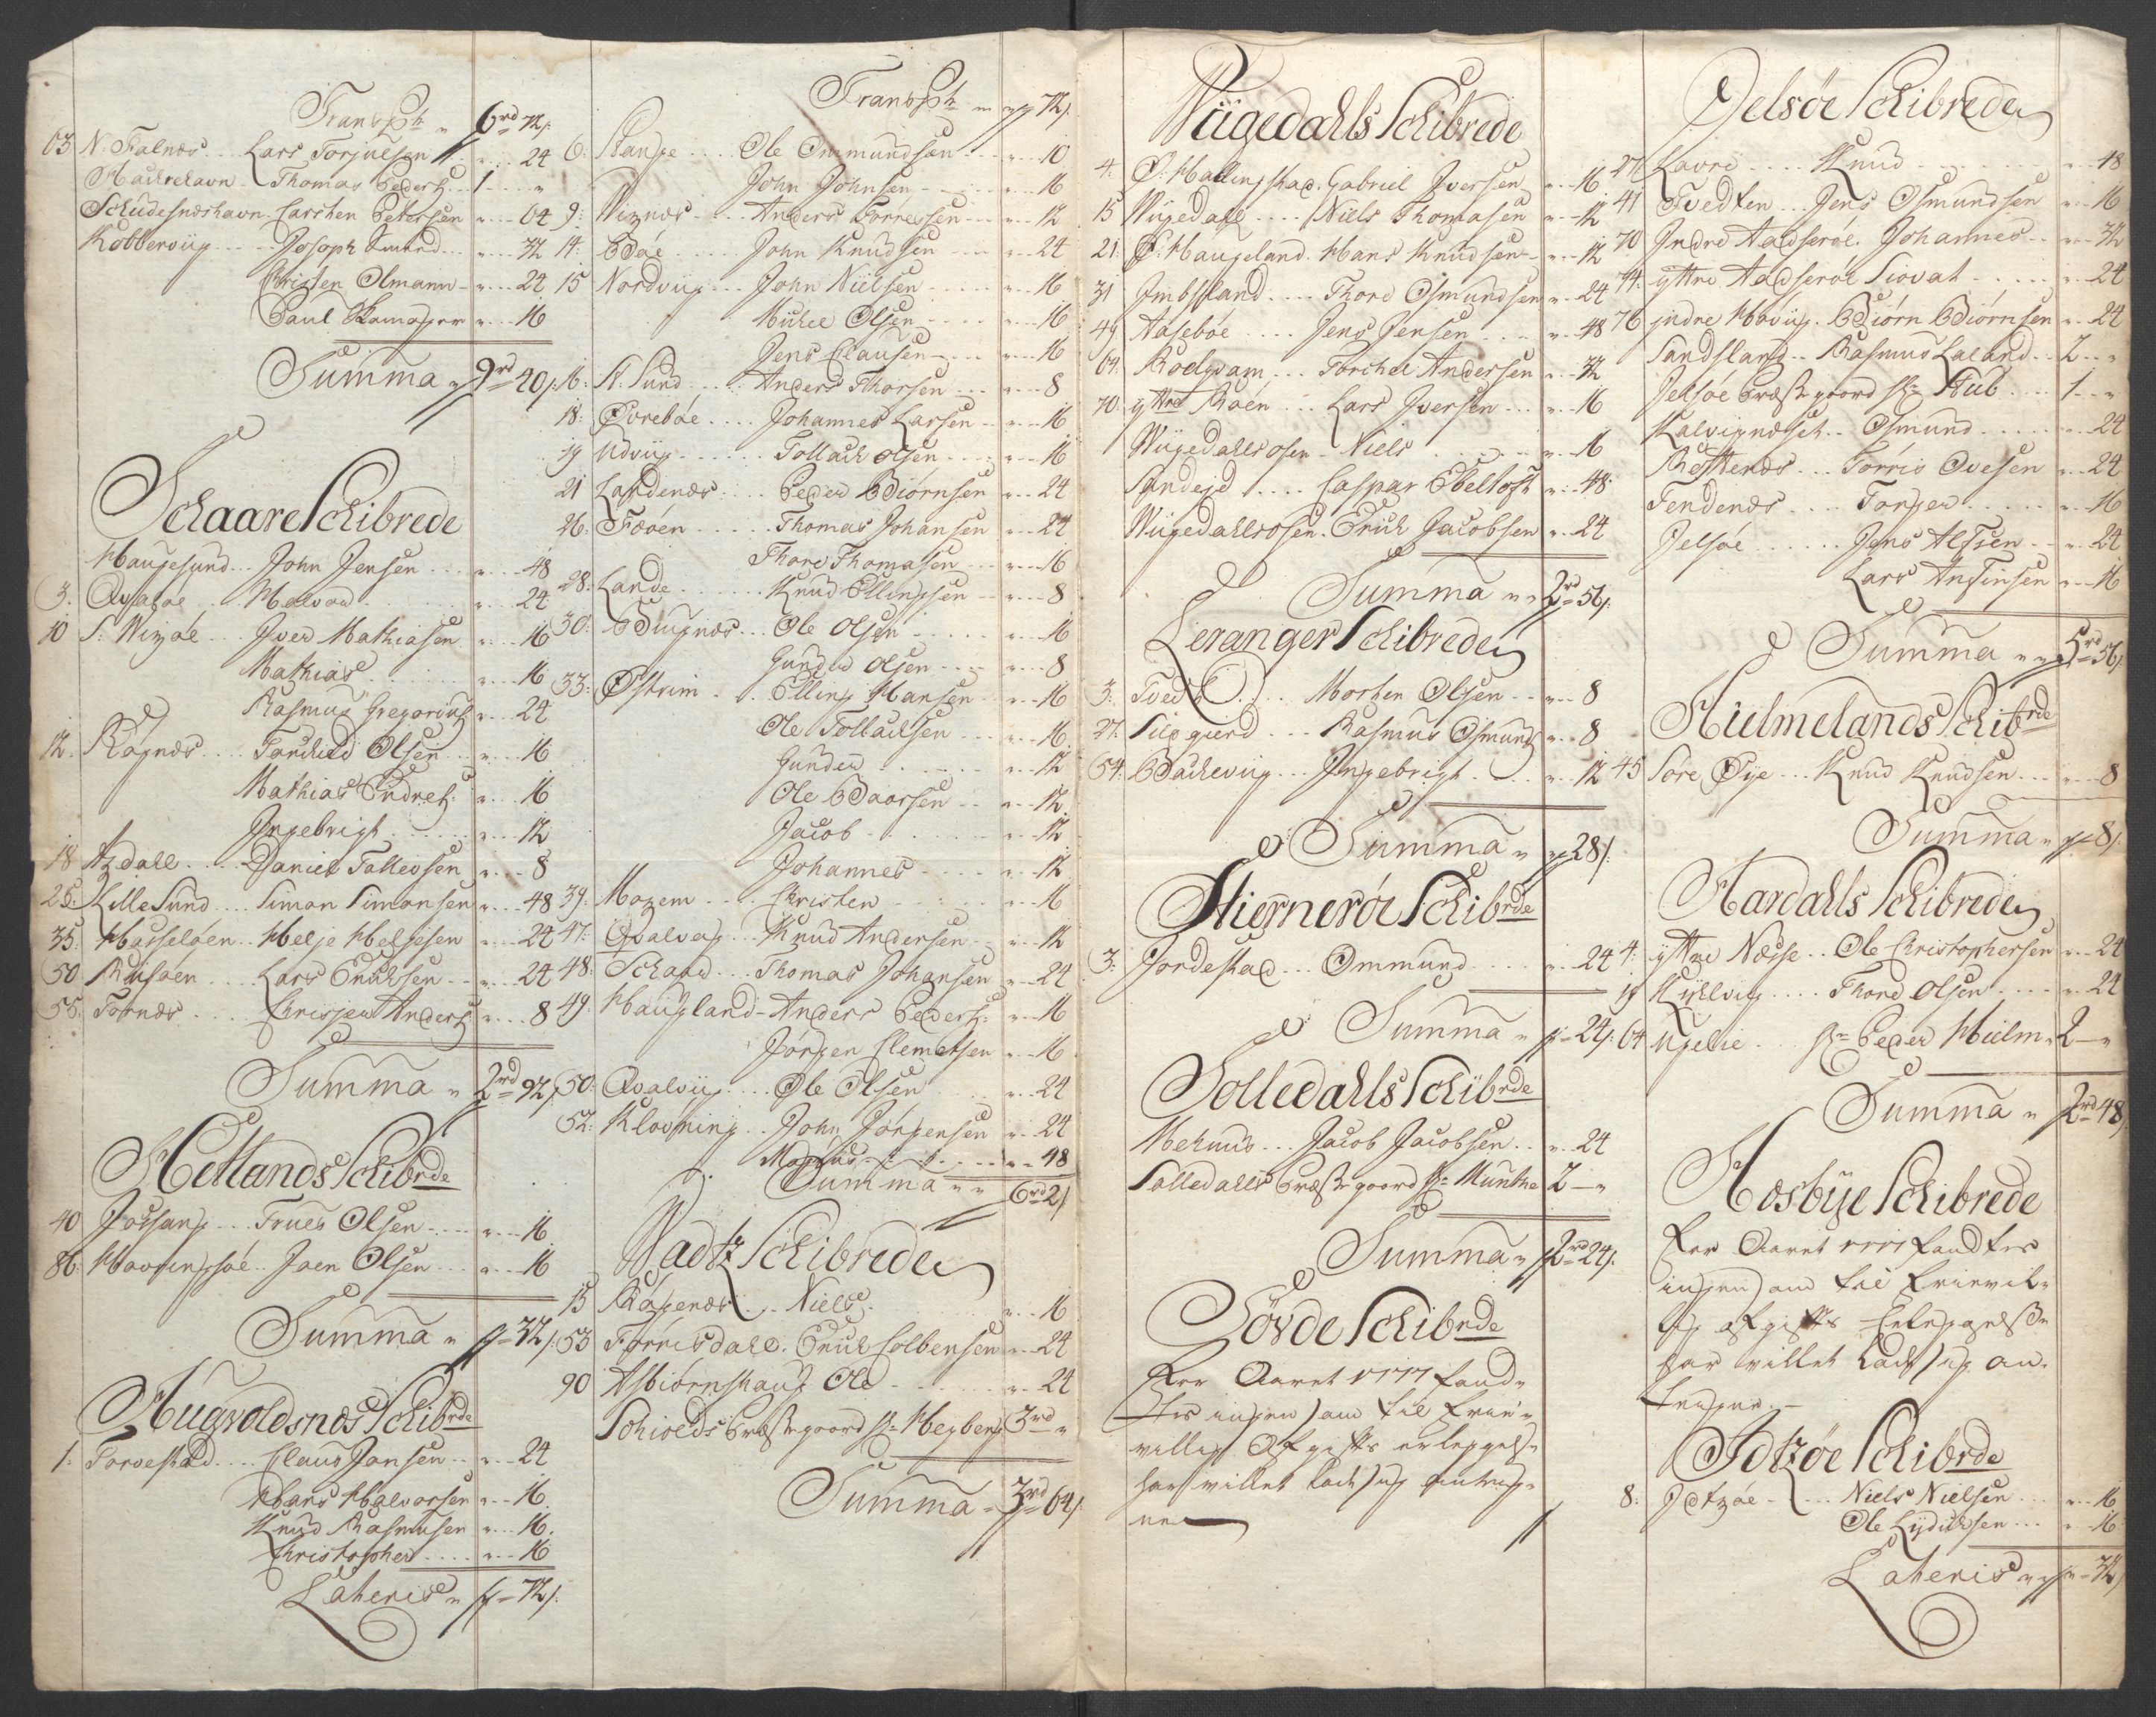 Transpt " 6rd 72 s:
63 N. Falnes .. Lars Torjulsen " .. 24
Mackrehavn - Thomas Peders: .. 1 .. "
Schudesneshavn - Carsten Petersen " .. 64
Kobberviig .... Joseph Smed ... " .. 32
Christen Olmann - " .. 24
Paul Skomager " .. 16
Summa " 9rd 40 s:
Schaare Schibrede
Haugesund .. John Jensen ... " .. 48
3. Qvaløe .. Halvor ...... " .. 24
10 S. Wixøe ... Iver Mathiasen " .. 16
Mathias ...... " .. 16
Rasmus Gregorius: " .. 24
12. Røgnes .... Torchild Olsen .. " .. 16
Mathias Endres: " .. 16
Ingebrigt ..... " .. 12
18 Axdall .... Daniel Tollevsen " .. 8
25: Lille Sund ... Simon Simonsen " .. 48
35: Hasseløen .. Helje Heljesen " .. 24
50 Røisøen .... Lars Erichsen .. " .. 24
55: Tornes .... Christen Anders: " ... 8
Summa " 2rd 92 s
Hetlands Schibrde
40 Jøssang ... Troues Olsen .... " .. 16
86: Havringsøe .. Joen Olsen ... " .. 16
Summa " " 32 s:
Augvoldsnes Schibrde
1: Torvestad .... Claus Jansen .. " .. 24
Hans Halvorsen " .. 16
Knud Rasmusen " .. 16.
Christopher .... " .. 16
Lateris " " 72 s:
Transpt " " 72 s:
6: Stange .... Ole Ommundsen .. " .. 10
John Johnsen ..... " .. 16
9: Wixnes .... Anders Torresen .. " .. 12
14: Bøe ..... John Knudsen ... " .. 24
15 Nordviig ... John Nielsen .... " .. 16
Michel Olsen ..... " .. 16
Jens Clausen .... " .. 16
16: N. Sund .... Anders Thorsen ... " .. 8
18: Øvrebøe .... Johannes Larsen .. " .. 16
19 Udviig ...... Tollach Olsen .... " .. 16
21 Landenes .... Peder Biørnsen " .. 24
26: Feøen ..... Thomas Johansen " .. 24
Thore Thomasen " .. 16
28: Lande ...... Knud Ellingsen .. " .. 8
30: Buugnes ... Ole Olsen ..... " .. 16
Gunder Olsen .... " .. 8
33: Østrim .. Elling Hansen " .. 16
Ole Tollachsen ... " .. 16
Gunder ...... " .. 12
Ole Baarsen ... " .. 12
Jacob ....... " .. 12
Johannes .... " .. 12
39: Moxem .... Christen ...... " .. 16
47: Qvalvog ... Knud Andersen .. " .. 12
48: Schaar ... Thomas Johansen " .. 24
49: Haugland - Anders Peders: " .. 16
Jørgen Clemetsen " .. 16
50: Qvalviig .... Ole Olsen .... " .. 24
52: Kløvning .. John Jørgensen " .. 24
Magnus ...... " .. 48
Summa " " 6rd 2 s
Nadtz Schibrede
15 Røgenes .... Niels ...... " .. 16
53 Tørrisdall. Erich Colbensen " .. 24
90 Asbiørnshaug Ole ..... " .. 24
Schiolds Præstegaard Hr: Heyberg 3rd "
Summa " 3rd 64 s:
Wiigedahls Schibrede
4. Ø: Hallingstad. Gabriel Iversen " .. 16
15 Wiigedall .... Niels Thomasen " .. 12
21 Ø: Haugeland. Hans Knudsen - " .. 12
31 Imbsland .... Thore Osmundsen " .. 24
49 Aasebøe .... Jens Jensen .... " .. 48
64. Rødgam .... Torchel Andersen " .. 32
70: ytre Røen ... Lars Iversen ... " .. 16
Wiigedahls osen - Niels ...... " .. 16
Sandeid .... Caspar Ebeltoft " .. 48
Wiigedahls osen. Erich Jacobsen " .. 24
Summa " " 2rd 56 s:
Leranger Schibrede
3: Tvedt .... Morten Olsen .. " .. 8
27: Siigierd ... Rasmus Osmunds: " .. 8
54: Bacheviig ... Ingebrigt .... " .. 12
Summa " " 28 s:
Stiernerøe Schibrde
3: Jordestad ... Ommund .... " .. 24
Summa " " 24 s:
Solledahls Schibrde
Mehuus ... Jacob Jacobsen .. " .. 24
Solledahls Præstegaard Hr: Munthe 2 - "
Summa " 2rd 24 s:
Søvde Schibrde
For Aaret 1777 fand-
tes ingen som til frie-
villig Afgifts erleggelse
har villet lade sig antegne
Jelsøe Schibrede
27: Lavre .... Knud ....... " .. 48
41 Tvedten ... Jens Osmundsen " .. 16
70 Indre Aadserøe. Johannes .. " .. 32
74: yttre Aadserøe Siovat ..... " .. 24
76 indre Høviig. Biørn Biørnsen " .. 24
Sandsland .. Rasmus Laland .. 2 .. "
Jelsøe Præstegaard Hr: Stub ... 1 - "
Kalvignæset .. Osmund ..... " .. 24
Røstenes ... Torris Ovesen " .. 24
Tendenes .... Torger ..... " .. 16
Jelsøe ...... Jens Alfsen .. " .. 24
Lars Anfinsen " .. 16
Summa " " 5rd 56 s
Hielmelands Schibrde
45 Søre Øye ... Knud Knudsen ... " .. 8
Summa " " 8 s:
Aardahls Schibrede
4: yttre Nesse .. Ole Christophersen " .. 24
19 Kylleviig .... Thore Olsen ..... " .. 24
64 Ugelie ... Hr: Peder Hielm " 2 - "
Summa " 2rd 48 s
Hesbye Schibrede
For Aaret 1777 fandtes
ingen som til Frievil-
lig afgifts Erleggelse
har villet lade sig an-
tegne.
Idtzøe Schibrde
8: Idtzøe ..... Niels Nielsen ... " .. 16
Ole Lydichsen ... " .. 16
Lateris " " 32 s